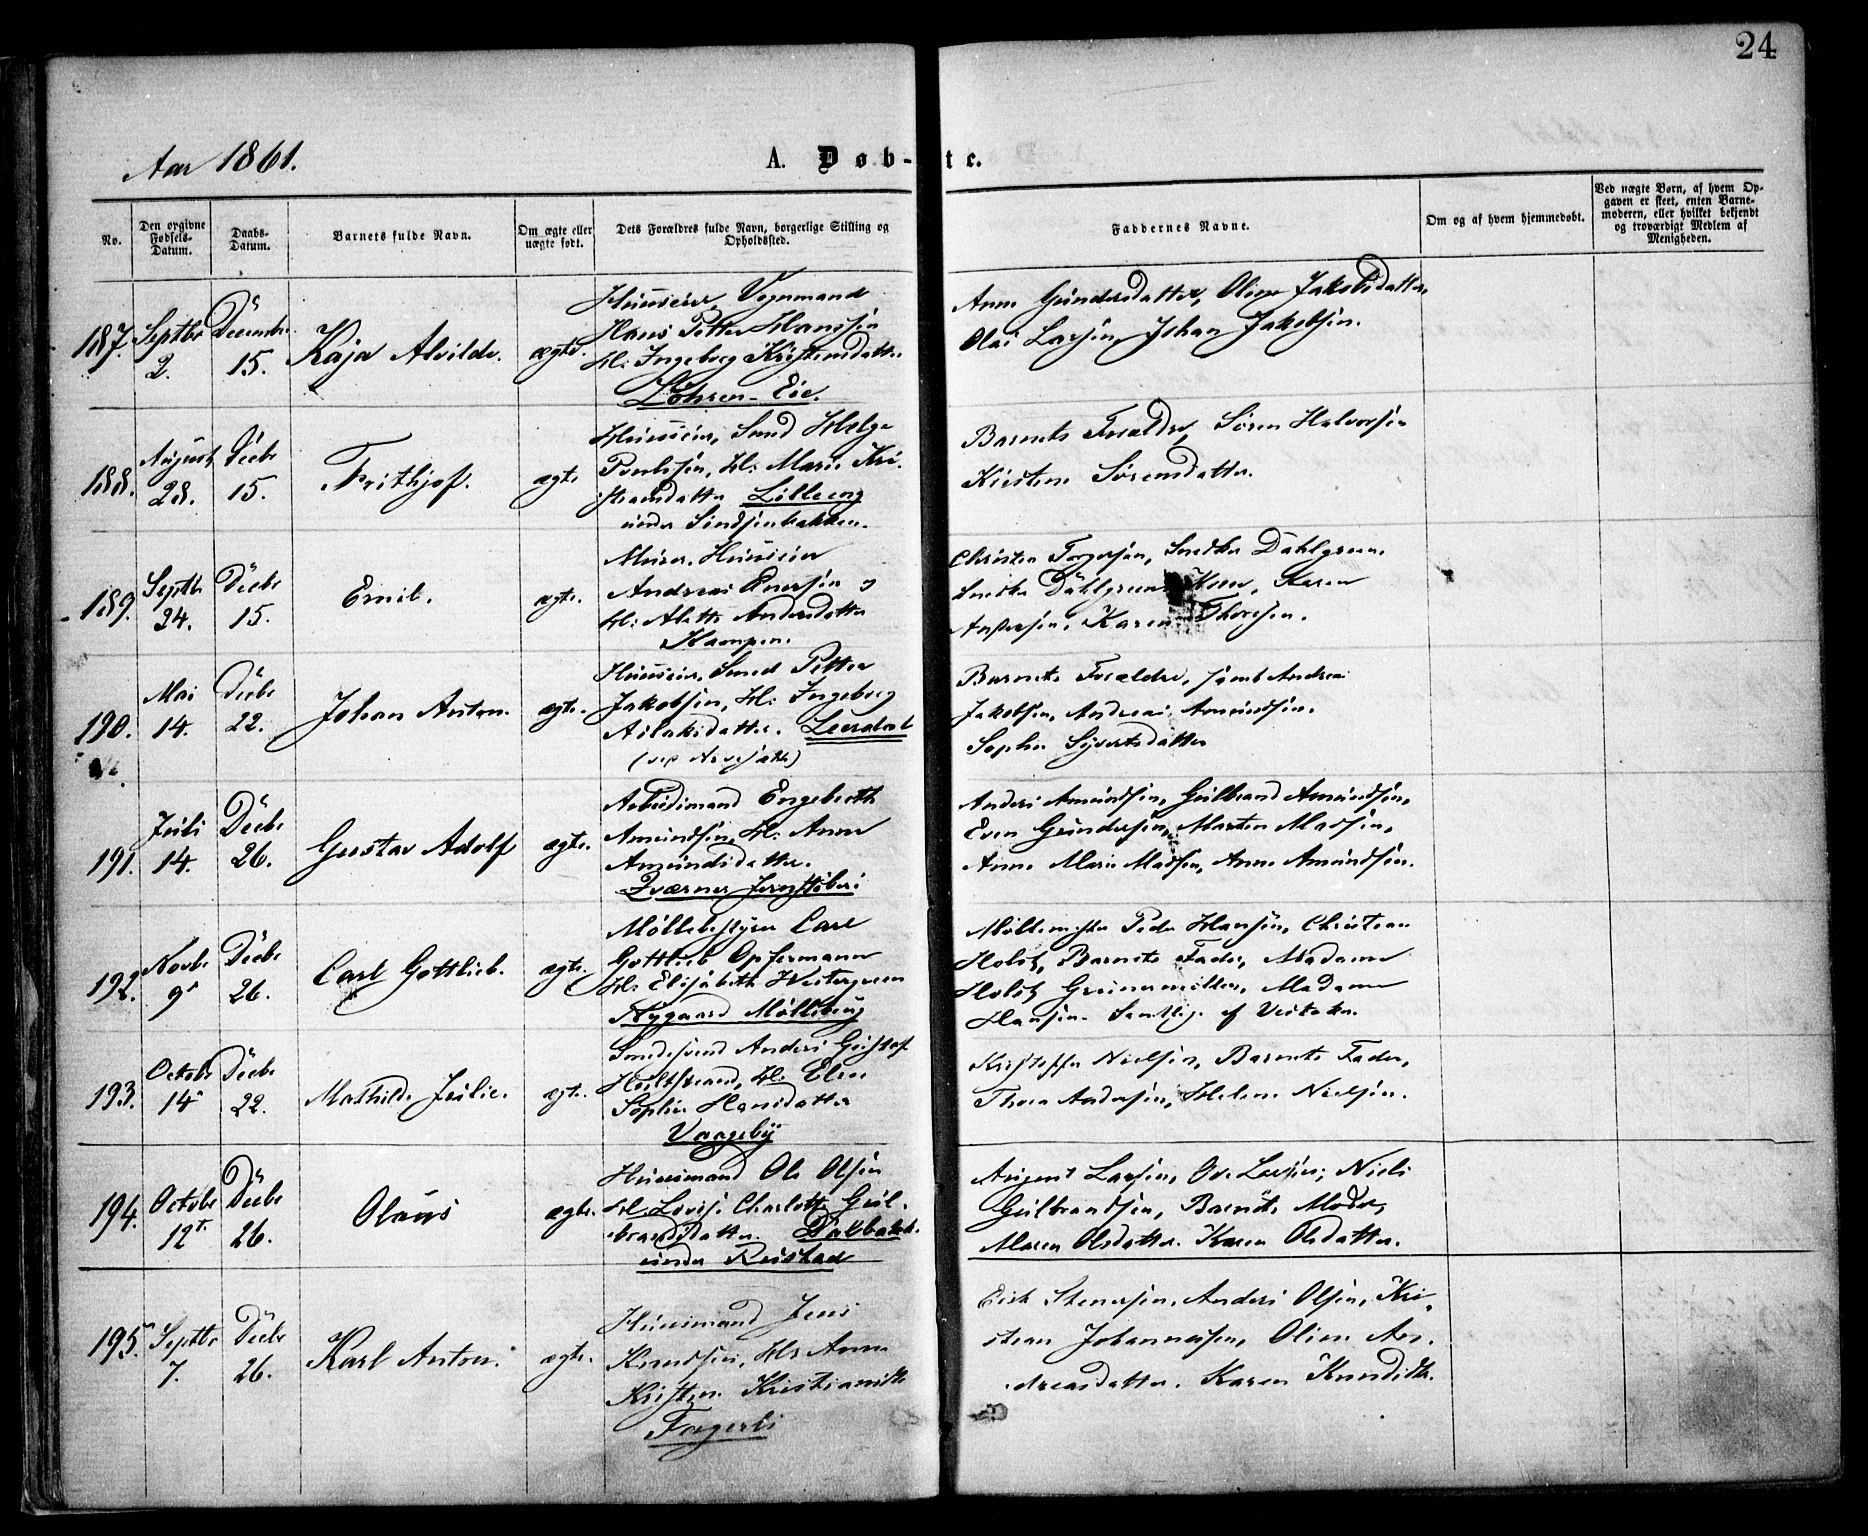 24
Aar 1861.
A. Døb- te.
No.
Den opgivne Fødsels-Datum.
Daabs-Datum.
Barnets fulde Navn.
Om ægte eller uægte født.
Dets Forældres fulde Navn, borgerlige Stilling og Opholdssted.
Faddernes Navne.
Om og af hvem hjemmedøbt.
Ved uægte Børn, af hvem Opgaven er skeet, enten Barnemoderen, eller hvilket bekjendt og troværdigt Medlem af Menigheden.
187. Septbr 2. Decembr. 15. Kaja Alvilde. ægte.
Huuseier, Vognmand
Hans Petter Hanssen
H: Ingeborg Kristensdatter
Lohren-Eie.
Anne Gundersdatter, Oline Jakobsdatter,
Olai Larsen, Johan Jakobsen.
188. August 28. Decbr 15. Frithjof. ægte
Huuseier, Smed Helge
Poulssen, H: Marie Kri-
stiansdatter Lilleeng
under Sinsenbakken.
Barnets Forældre, Søren Halvorsen
Kirstine Sørensdatter.
189. Septbr 24. Decbr 15. Emil. ægte.
Murer, Huuseier
Andreas Enersen og
H: Alette Andersdatter
Kampen.
Christen Torgersen, Dahlgreen.
Dahlgreens Kone, Karen
Andersen, Karen Thoresen.
190. Mai 14. Decbr 22. Johan Anton. ægte.
Huuseier, Smed Petter
Jakobsen, H: Ingeborg
Aslaksdatter. Leerdal
Barnets Forældre, samt Andrea
Jakobsen, Andreas Amundsen.
Sophie Syvertsdatter
191. Juli 14. Decbr 26. Gustav Adolf ægte.
Arbeidsmand Engebreth
Amundsen, H: Anne
Amundsdatter.
Qværner Jernstøberi
Anders Amundsen, Gulbrand Amundsen,
Even Gundersen, Marten Madsen,
Anne Marie Madsen, Anne Amundsen.
192. Novbr 9 Decbr 26. Carl Gottlieb. ægte.
Møllebestyrer Carl
Gottlieb Opfermann
H: Elisabeth Westergreen
Nygaard Møllebrug
Møllemester Peder Hansen, Christian
Holst, Barnets Fader, Madame
Holst, Madame
Hansen. Samtlige af Vestaker.
193. Octobr 14 Decbr 22. Mathilde Julie. ægte.
Smedesvend Anders Gustaf
Hultstrand, H: Elen
Sophie Hansdatter
Vaageby
Kristoffer Nielsen, Barnets Fader,
Thora Andersen, Helene Nielsen.
194. Octobr 12te. Decbr 26. Olaus ægte.
Huusmand Ole Olsen
H: Lovise Charlotte Gul-
brandsdatter. Dalbakk.
under Rustad
August Larsen, Ole Larsen, Niels
Gulbrandsen, Barnets Moder,
Maren Olsdatter. Karen Olsdatter.
195. Septbr 7. Decbr 26. Karl Anton. ægte.
Huusmand Jens
Knudsen, H: Anne
Kristine Kristiansdtr
Fagerli
Erik Stenersen, Anders Olsen, Kri-
stian Johannessen, Oline An-
dreasdatter. Karen Knudsdtr.